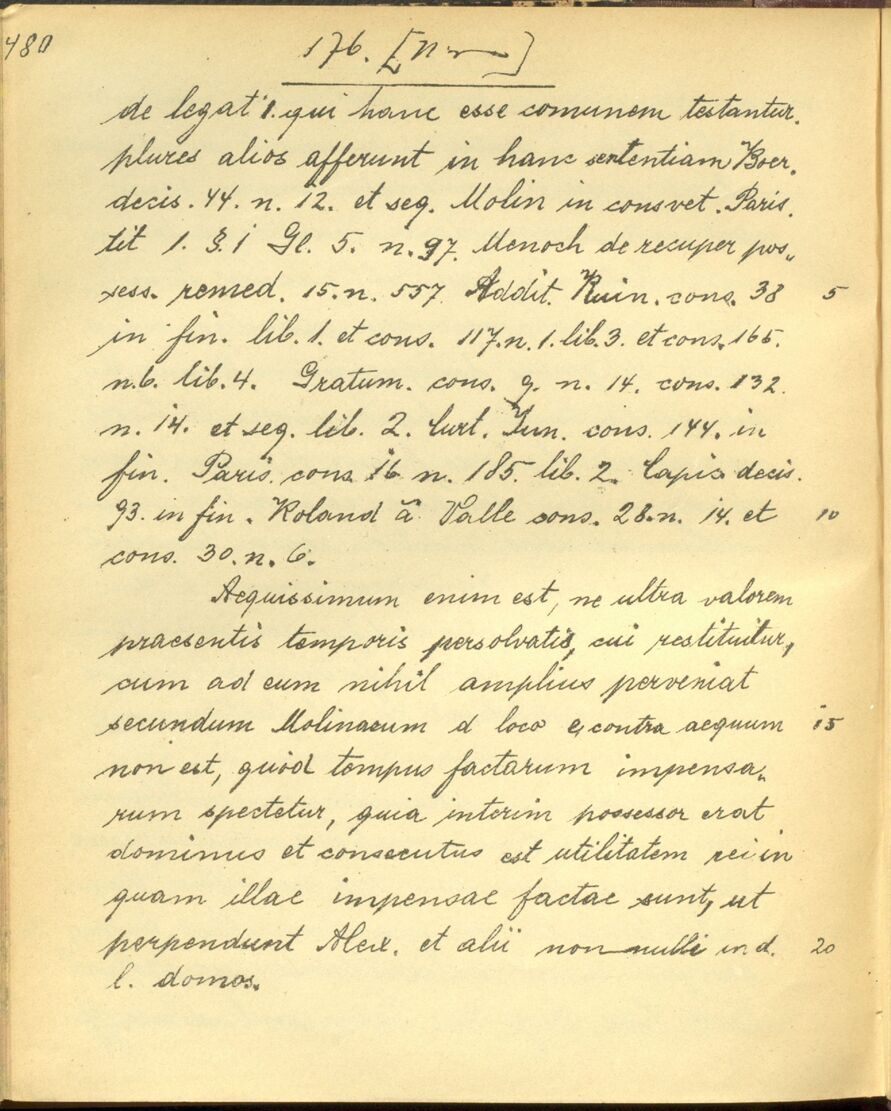 480
176.
de legat 1. qui hanc esse comunem testantur.
plures alios afferunt in hanc sententiam Boer.
decis. 44. n. 12. et seq. Molin in consvet. Paris.
tit 1. §. 1 Gl. 5. n. 97. Menoch de recuper pos„
sess. remed. 15. n. 557 Addit. Ruin. cons. 38 5
in fin. lib. 1. et cons. 117. n. 1. lib. 3. et cons. 165.
n. 6. lib. 4. Gratum. cons. 9. n. 14. cons. 132.
n. 14. et seq. lib. 2. Curt. Jun. cons. 144. in
fin. Paris. cons. 16 n. 185. lib. 2. Capic decis.
93. in fin. Roland â Valle cons. 28. n. 14. et 10
cons. 30. n. 6.
Aequissimum enim est, ne ultra valorem
praesentis temporis persolvatis, cui restituitur,
cum ad eum nihil amplius perveniat
secundum Molinaeum d loco e contra aequum 15
non est, quod tempus factarum impensa„
rum spectetur, quia interim possessor erat
dominus et consecutus est utilitatem rei in
quam illae impensae factae sunt, ut
perpendunt Alex. et alii non nulli in d. 20
l. domos.